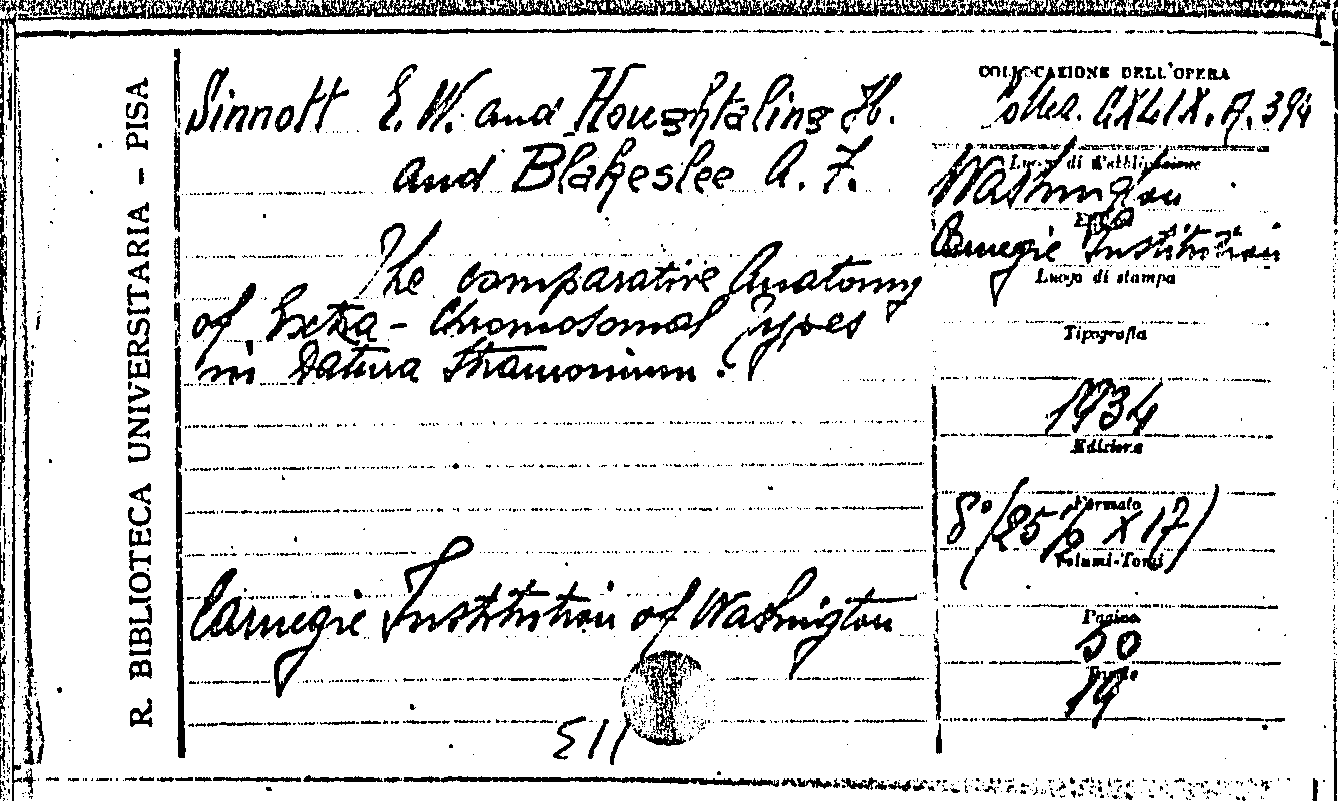 R. BIBLIOTECA UNIVERSITARIA - PISA
Sinnott E. W. and Houghtaling H.
and Blakeslee A. F.
The comparative Anatomy
of Extra-Chromosomal Types
in Datura Stramonium.
Carnegie Institution of Washington
COLLOCAZIONE DELL'OPERA
Collez. CXLIX. A. 394
Luogo di Pubblicazione
Washington
Carnegie Institution
Luogo di stampa
Tipografia
1934
Edizione
Formato
8° (25 1/2 X 17)
Volumi-Tomi
Pagine
50
19